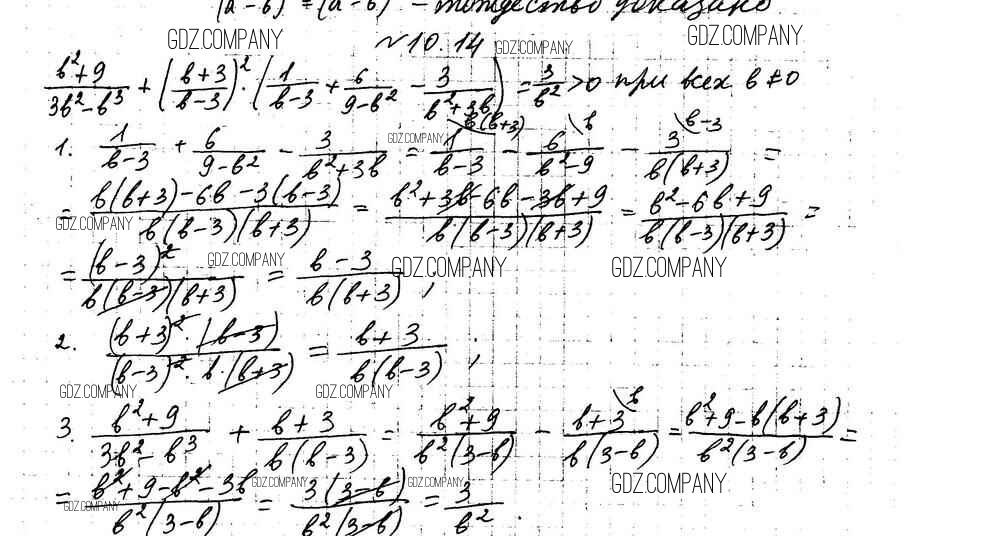 (a-b) = (a-b) - тождество доказано
GDZ.COMPANY GDZ.COMPANY GDZ.COMPANY
~10.14
(b²+9)/(3b²-b³) + ((b+3)/(b-3))² · (1/(b-3) + 6/(9-b²) - 3/(b²+3b)) = 3/b² > 0 при всех b ≠ 0
GDZ.COMPANY
1. 1/(b-3) + 6/(9-b²) - 3/(b²+3b) = 1/(b-3) \b(b+3) - 6/(b²-9) \b - 3/(b(b+3)) \b-3 =
= (b(b+3)-6b-3(b-3))/(b(b-3)(b+3)) = (b²+3b-6b-3b+9)/(b(b-3)(b+3)) = (b²-6b+9)/(b(b-3)(b+3)) =
GDZ.COMPANY
= (b-3)²/(b(b-3)(b+3)) = (b-3)/(b(b+3)),
GDZ.COMPANY GDZ.COMPANY GDZ.COMPANY
2. ((b+3)²·(b-3))/((b-3)²·b·(b+3)) = (b+3)/(b(b-3)),
GDZ.COMPANY GDZ.COMPANY
3. (b²+9)/(3b²-b³) + (b+3)/(b(b-3)) = (b²+9)/(b²(3-b)) - (b+3)/(b(3-b)) \b = (b²+9-b(b+3))/(b²(3-b)) =
GDZ.COMPANY GDZ.COMPANY GDZ.COMPANY
= (b²+9-b²-3b)/(b²(3-b)) = (3(3-b))/(b²(3-b)) = 3/b².
GDZ.COMPANY